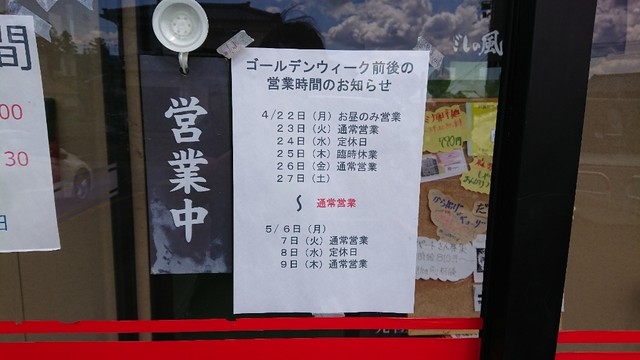 間
00
30
日
営業中
ゴールデンウィーク前後の
営業時間のお知らせ
4/22日(月)お昼のみ営業
23日(火)通常営業
24日(水)定休日
25日(木)臨時休業
26日(金)通常営業
27日(土)
〜 通常営業
5/6日(月)
7日(火)通常営業
8日(水)定休日
9日(木)通常営業
の風